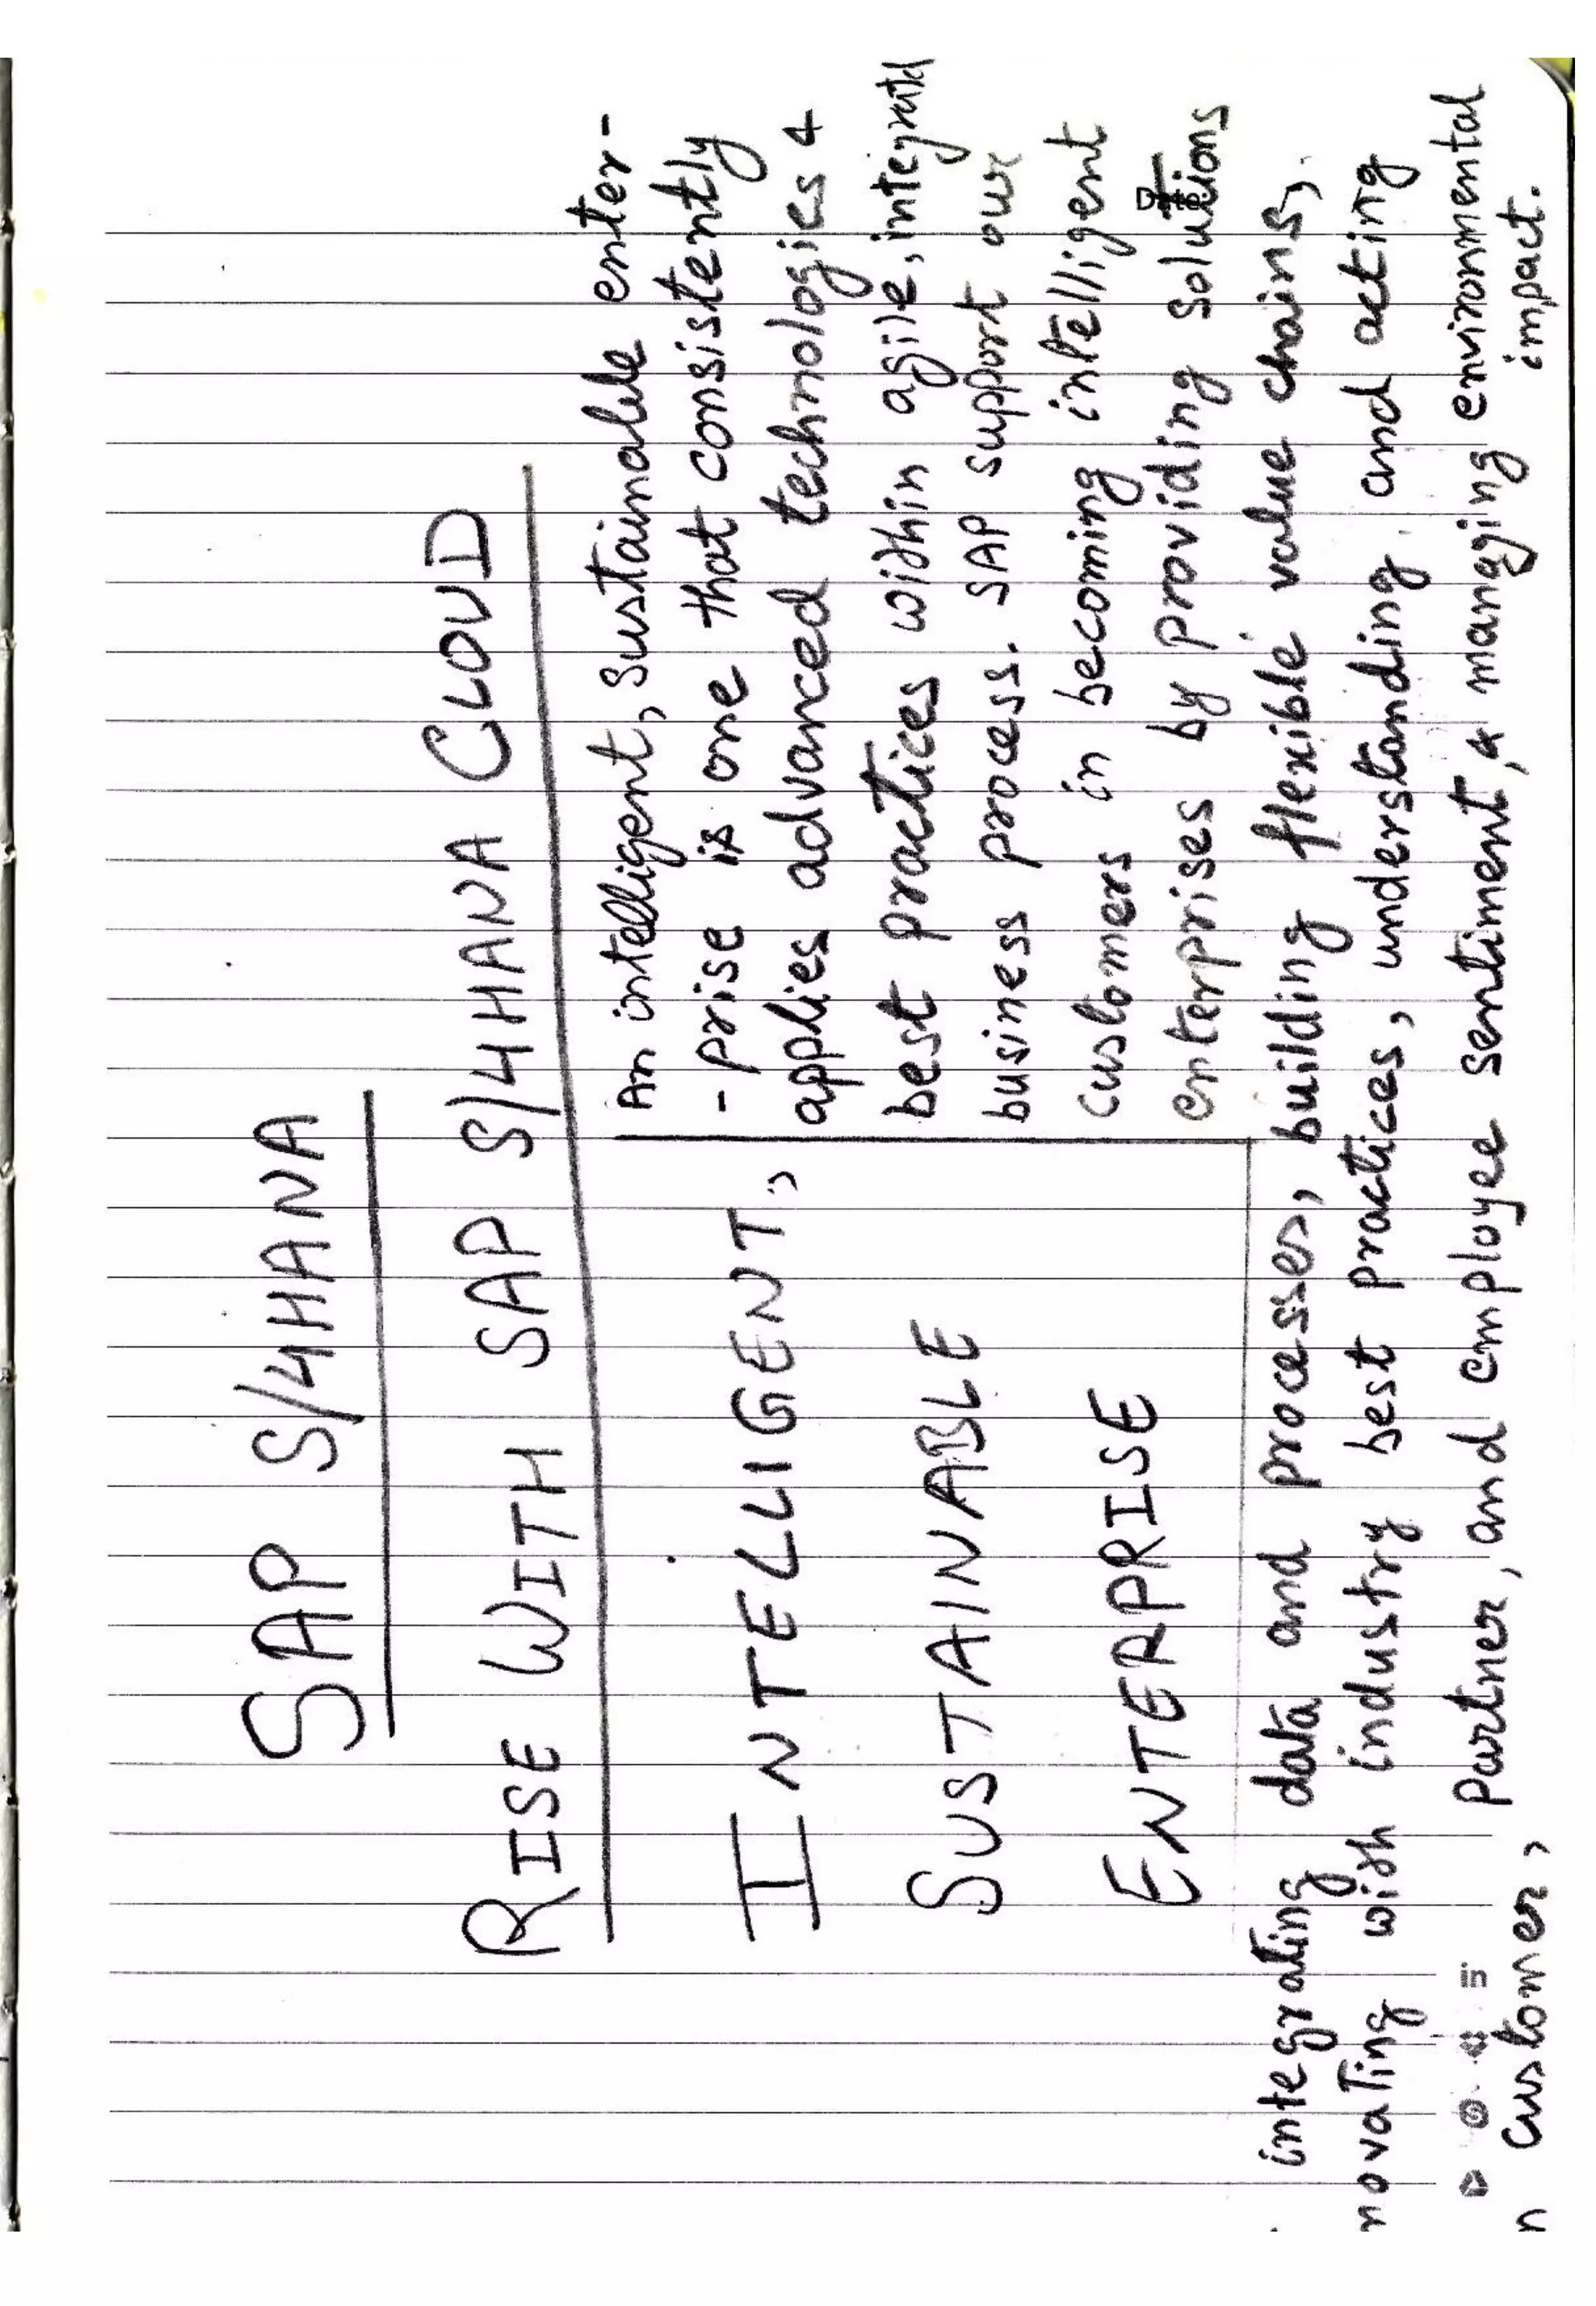 SAP S/4HANA
RISE WITH SAP S/4HANA CLOUD
INTELLIGENT,
SUSTAINABLE
ENTERPRISE
An intelligent, sustainable enter-
-prise is one that consistently
applies advanced technologies &
best practices within agile, integrated
business process. SAP support our
customers in becoming intelligent
enterprises by providing solutions
integrating data and processes, building flexible value chains,
novating with industry best practices, understanding and acting
n customer, Partner, and employee sentiment, & managing environmental
impact.